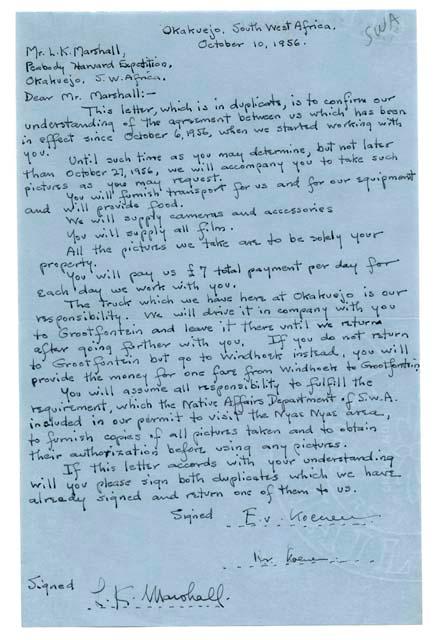 SWA
Okakuejo, South West Africa.
October 10, 1956.
Mr. L.K. Marshall,
Peabody Harvard Expedition,
Okakuejo, S.W. Africa.
Dear Mr. Marshall:—
This letter, which is in duplicate, is to confirm our
understanding of the agreement between us which has been
in effect since October 6, 1956, when we started working with
you.
Until such time as you may determine, but not later
than October 27, 1956, we will accompany you to take such
pictures as you may request.
You will furnish transport for us and for our equipment
and will provide food.
We will supply cameras and accessories
You will supply all film.
All the pictures we take are to be solely your
property.
You will pay us £7 total payment per day for
each day we work with you.
The truck which we have here at Okakuejo is our
responsibility. We will drive it in company with you
to Grootfontein and leave it there until we return
after going further with you. If you do not return
to Grootfontein but go to Windhoek instead, you will
provide the money for one fare from Windhoek to Grootfontein
You will assume all responsibility to fulfill the
requirement, which the Native Affairs Department of S.W.A.
included in our permit to visit the Nyae Nyae area,
to furnish copies of all pictures taken and to obtain
their authorization before using any pictures.
If this letter accords with your understanding
will you please sign both duplicates which we have
already signed and return one of them to us.
Signed E. v. Koenen
Koenen
Signed L.K. Marshall.